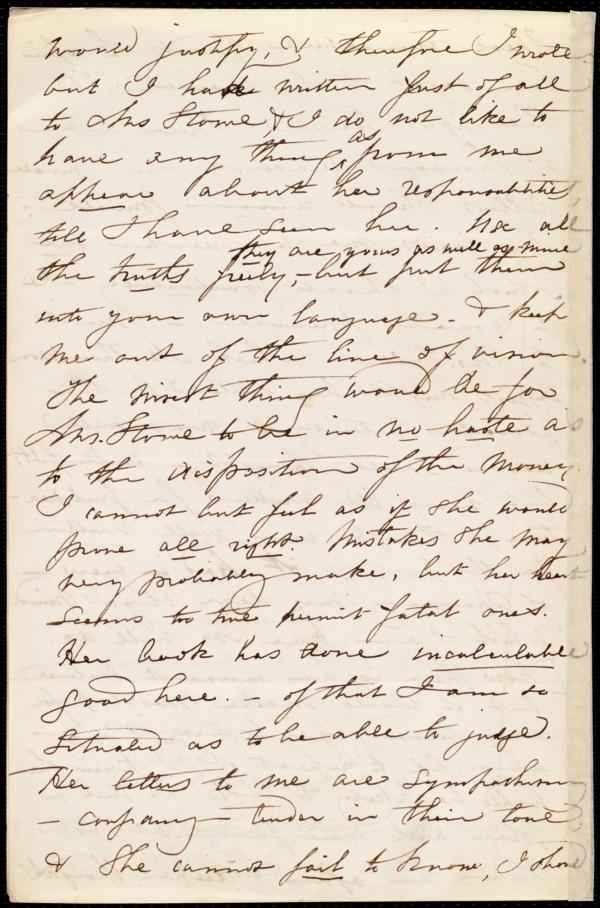 would justify, & therefore I wrote
but I have written first of all
to Mrs Stowe, & I do not like to
have any thing as from me
appear about her responsibilities,
till I have seen her. Use all
they are yours as well as mine
the truths freely, – but put them
into your own language – & keep
me out of the line of vision.
The wisest thing would be for
Mrs. Stowe to be in no haste as
to the disposition of the money.
I cannot but feel as if she would
prove all right. Mistakes she may
very probably make, but her heart
seems too true permit fatal ones.
Her book has done incalculable
good here. – of that I am so
situated as to be able to judge.
Her letters to me are sympathising
– – tender in their tone
& she cannot fail to know, I should